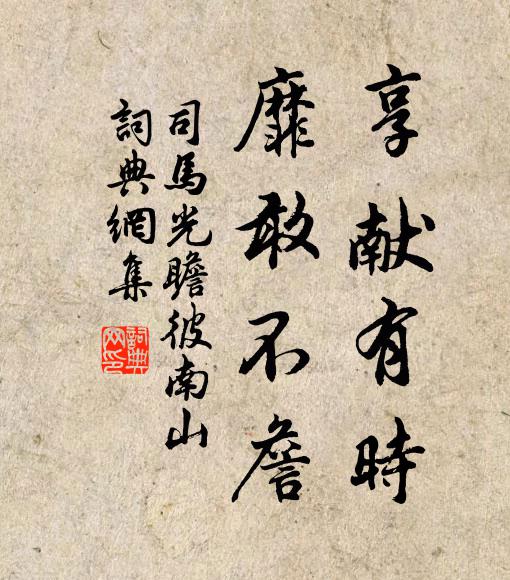 享献有時
靡敢不詹
司馬光瞻彼南山
詞典網集
詞典網印